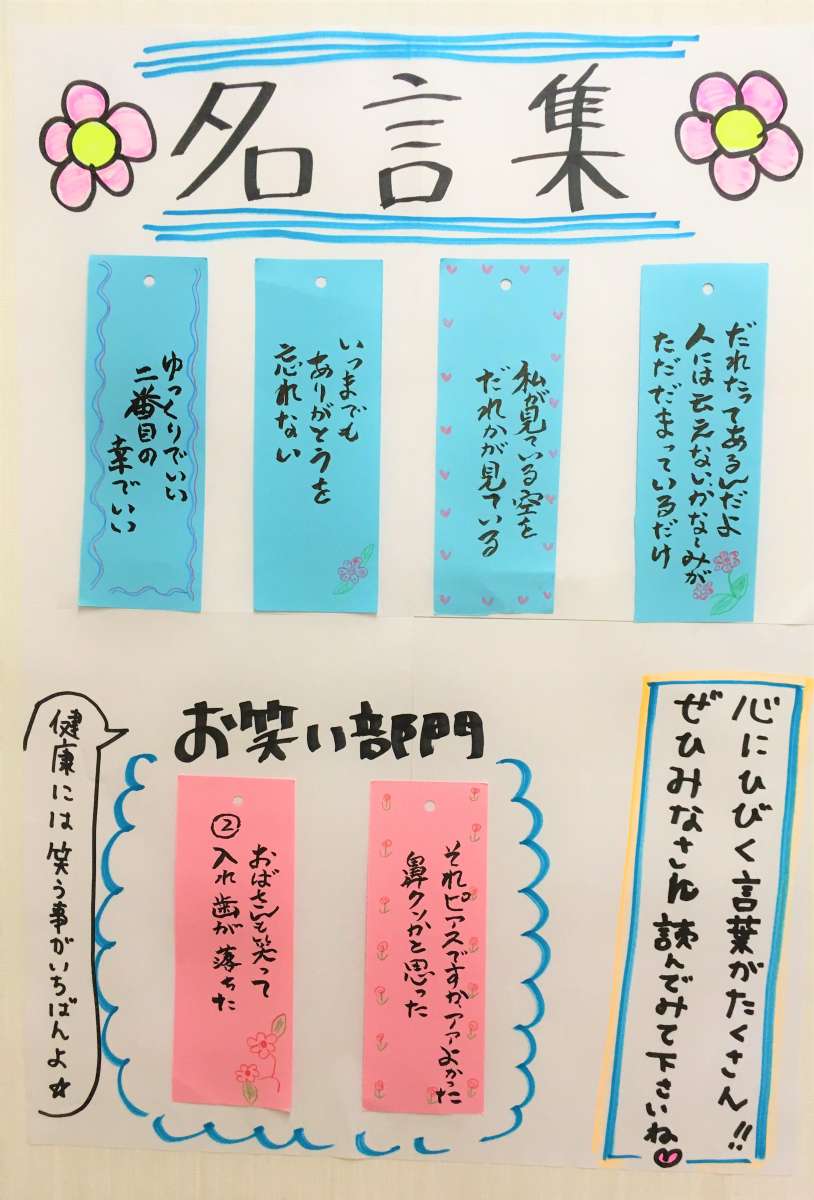 名言集
だれたってあるんだよ
人には云えないかなしみが
ただだまっているだけ
私が見ている空を
だれかが見ている
いつまでも
ありがとうを
忘れない
ゆっくりでいい
二番目の
幸でいい
心にひびく言葉がたくさん!!
ぜひみなさん読んでみて下さいね
お笑い部門
それピアスですか、アァよかった
鼻クソかと思った
おばさんも笑って
② 入れ歯が落ちた
健康には笑う事がいちばんよ☆